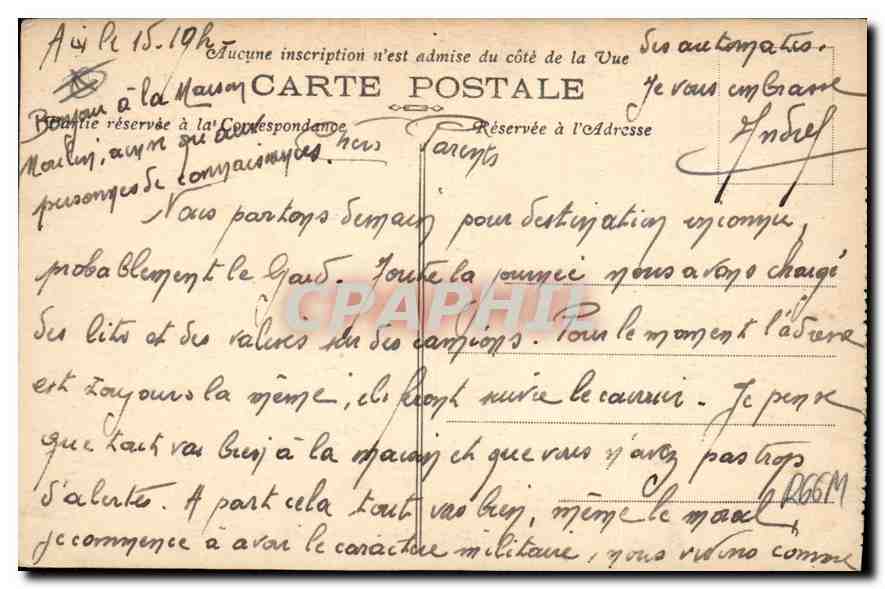 Aix le 15. 19h
Aucune inscription n'est admise du côté de la Vue
CARTE POSTALE
Partie réservée à la Correspondance
Réservée à l'Adresse
Bonjour à la Maison
Moulin, ainsi qu'aux
personnes de connaissances.
Chers Parents
Nous partons demain pour destination inconnue,
probablement le Gard. Toute la journée nous avons chargé
des lits et des valises sur des camions. Pour le moment l'adresse
est toujours la même, ils feront suivre le courrier. Je pense
que tout vas bien à la maison et que vous n'avez pas trop
d'alertes. A part cela tout vas bien, même le moral,
je commence à avoir le caractère militaire, nous vivons comme
des automates.
Je vous embrasse
André
R66M
CPAPHIL